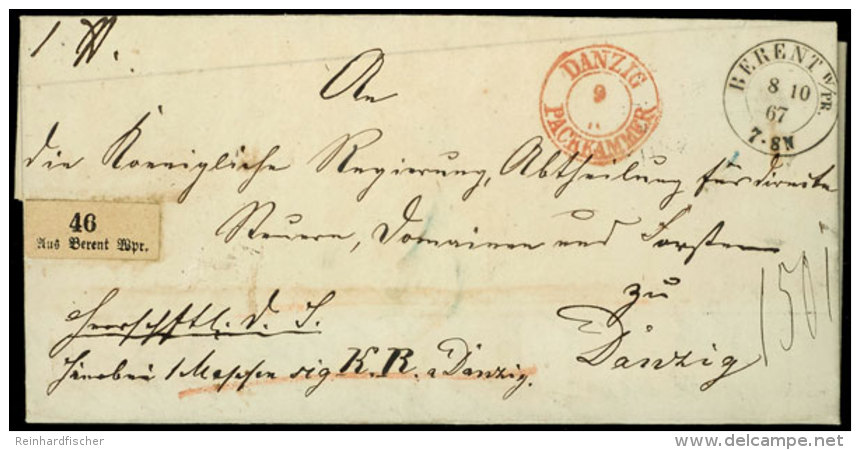 1 ℔.
An
DANZIG
9
PACKKAMMER
BERENT W/PR.
8 10
67
7-8N
die Koenigliche Regierung, Abtheilung für directe
46
Aus Berent Wpr.
Steuern, Domainen und Forsten
zu
Danzig
Herrschftl. d. S.
Hierbei 1 sig K. R. a Danzig.
Reinhardfischer
delcampe.net